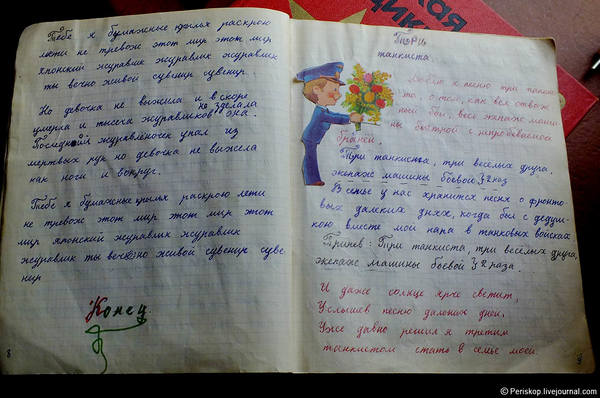 Тебе я бумажные крылья раскрою
лети не тревож этот мир этот мир
японский журавлик журавлик журавлик
ты вечно живой сувенир сувенир.
Но девочка не выжила и вскоре
умерла и тысяча журавликов не зделала она.
Последний журавлёночек упал из
мертвых рук но девочка не выжела
как ноги и вокруг.
Тебе я бумажные крылья раскрою лети
не тревож этот мир этот мир этот
мир японский журавлик журавлик
журавлик ты вечно живой сувенир суве-
нир
Конец
8
Три
танкиста.
Любят к меню три танкис-
та, о том, как вёл отваж-
ный бой, весь экипаж маши-
ны быстрой с непробиваемой
бронёй.
Три танкиста, три весёлых друга,
экипаж машины боевой 2 раз
В семье у нас хранится песня о фронто-
вых далёких днях, когда был с дедуш-
кою вместе мой папа в танковых войсках
Припев: Три танкиста, три весёлых друга,
экипаж машины боевой 2 раза.
И даже солнце ярче светит,
Услышев песню дальних дней.
Уже давно решил я третим
танкистом стать в семье моей.
© Periskop.livejournal.com